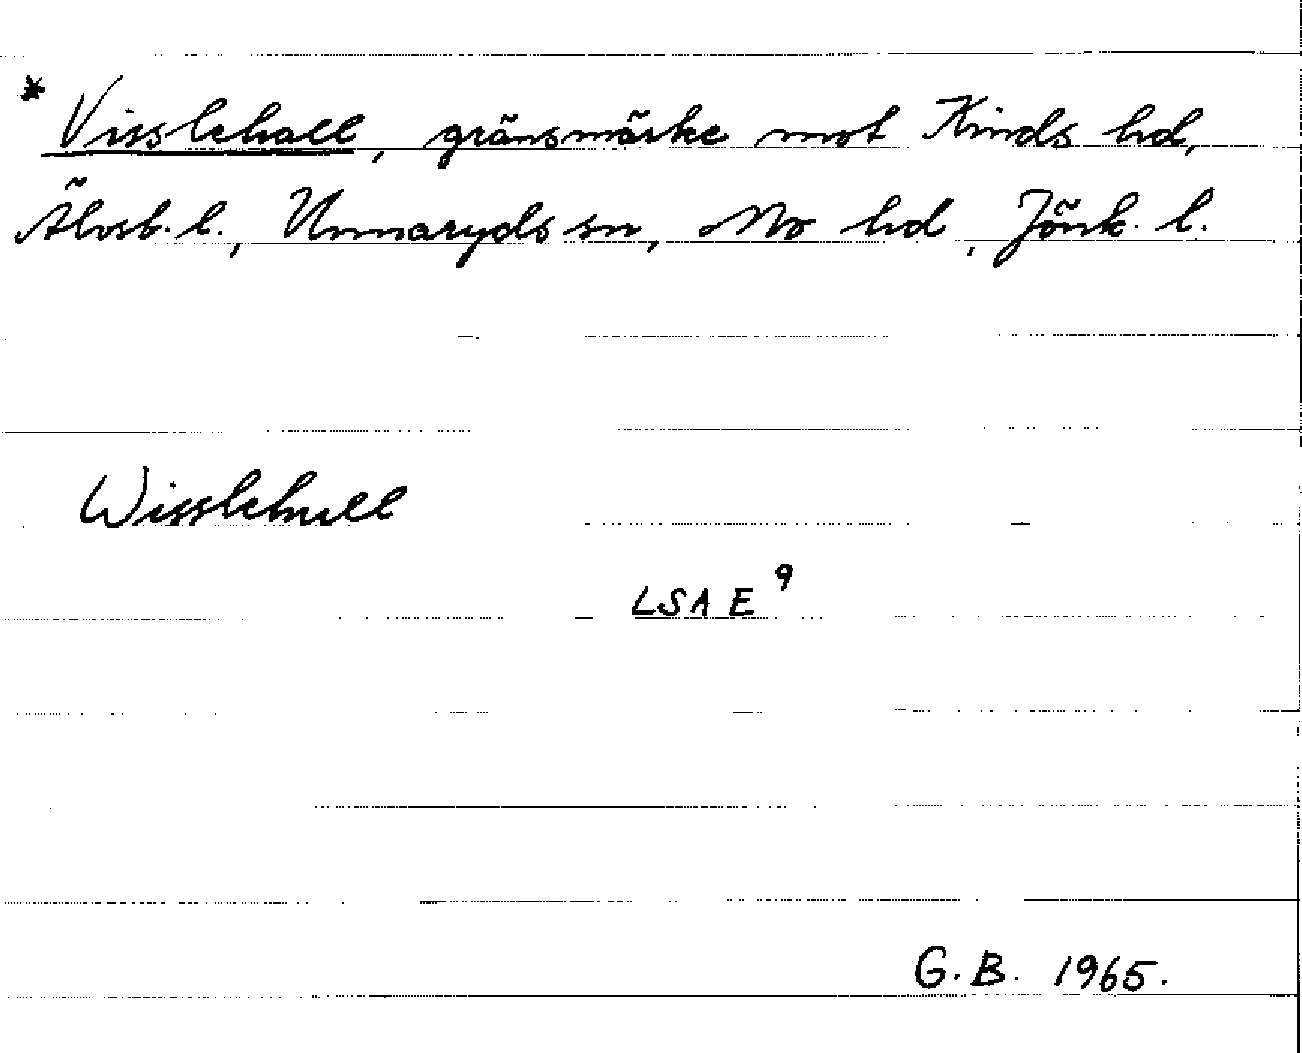 * Visslehall, gränsmärke mot Kinds hd,
Älvsb. l., Unnaryds sn, Mo hd, Jönk. l.
Wisslehall
LSA E9
G.B. 1965.